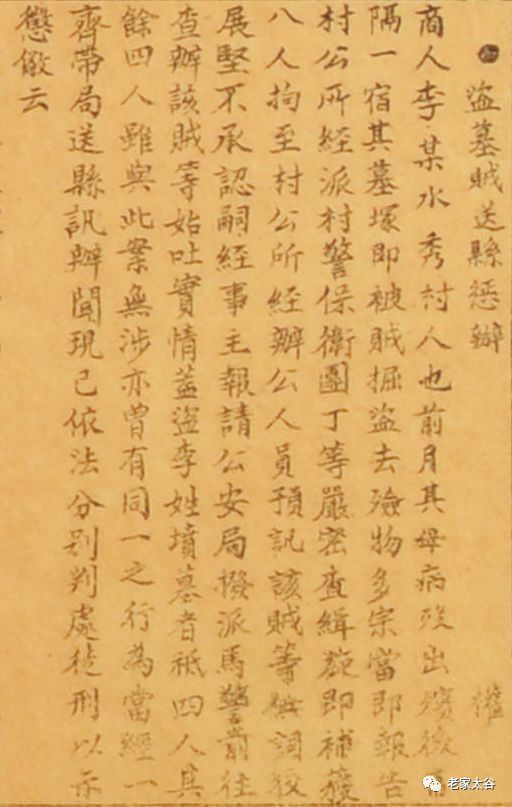 盜墓賊送縣惩辦 權
商人李某水秀村人也前月其母病歿出殯後
隔一宿其墓塚即被賊掘盜去殮物多宗當即報告
村公所經派村警保衛團丁等嚴密查緝旋即補獲
八人拘至村公所經辦公人員預訊該賊等供詞狡
展堅不承認嗣經事主報請公安局撥派馬警前往
查辦該賊等始吐實情蓋盜李姓墳墓者祗四人其
餘四人雖與此案無涉亦曾有同一之行為當經一
齊帶局送縣訊辦聞現已依法分别判處徒刑以示
懲儆云
老家太谷